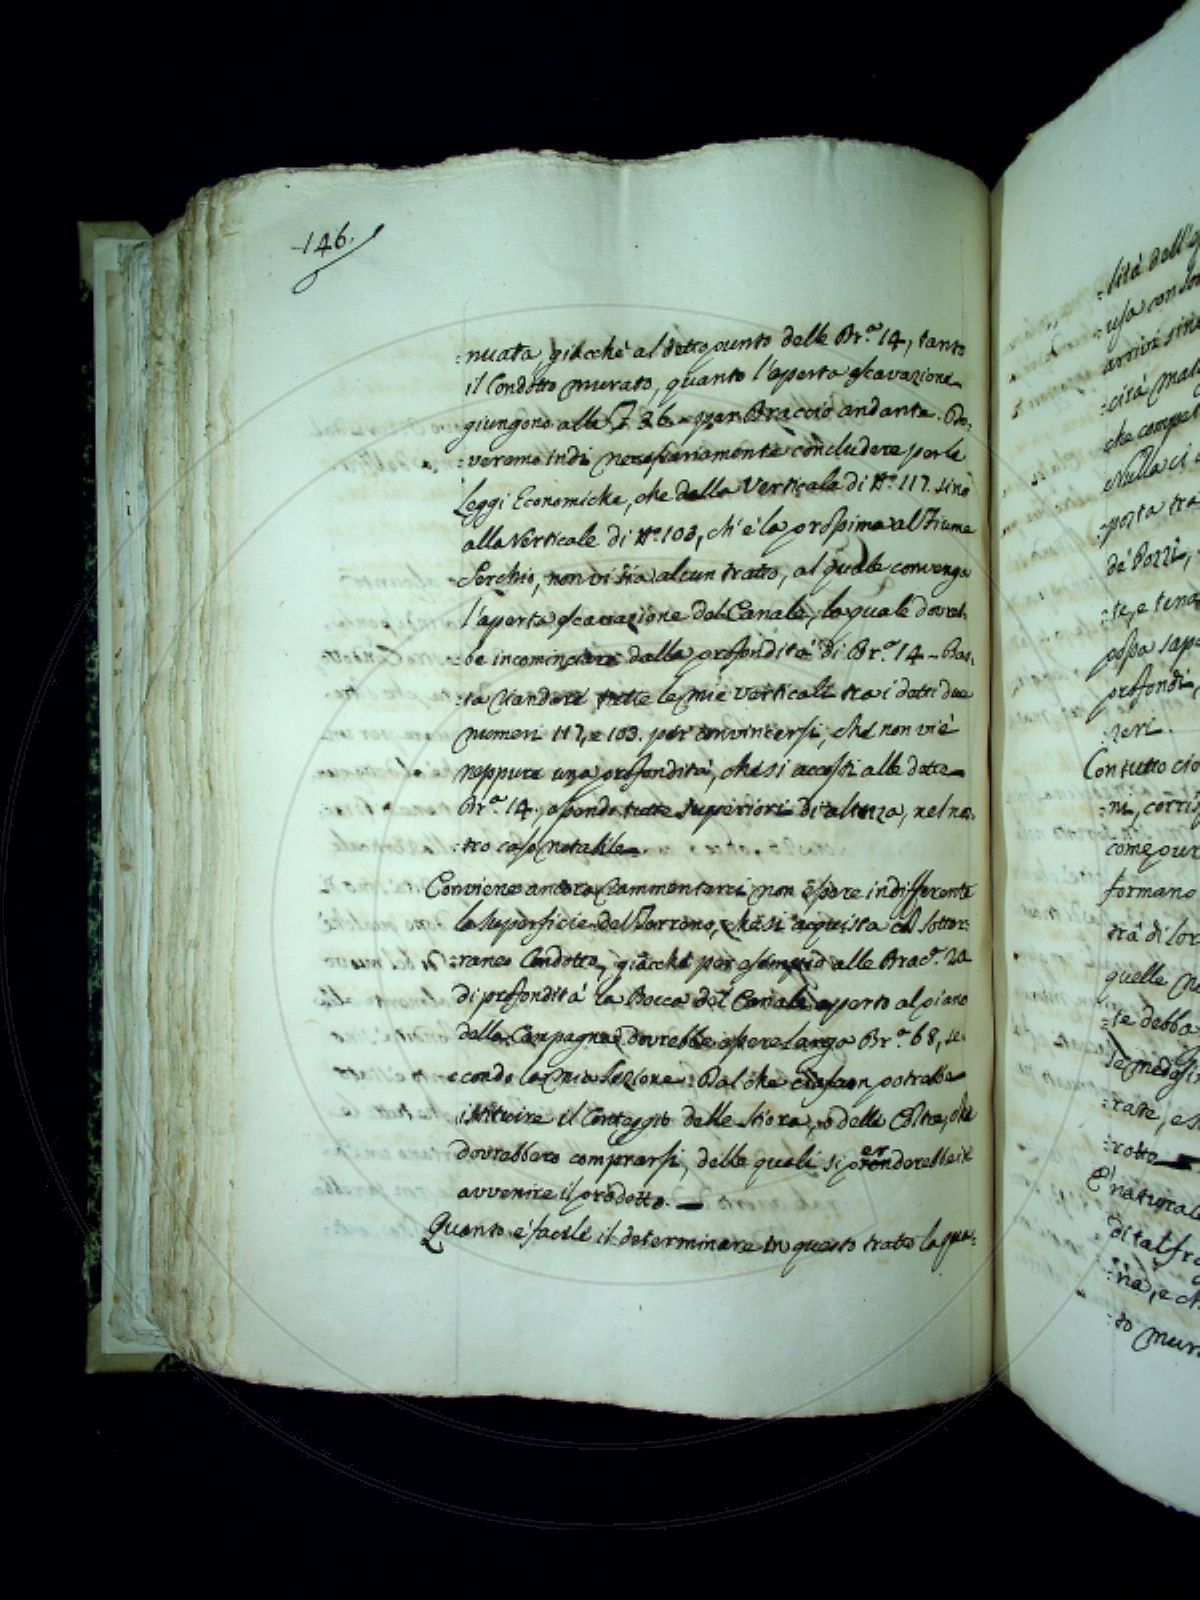 146.
:nuata, giacchè al detto punto delle Br.ª 14, tanto
il Condotto murato, quanto l'aperta escavazione
giungono alle 36 per Braccio andante. Do:
:veremo indi necessariamente concludere per le
Leggi Economiche, che dalla Verticale di N.º 117. sino
alla Verticale di N.º 103, ch'è la prossima al Fiume
Serchio, non vi sia alcun tratto, al quale convenga
l'aperta escavazione del Canale, la quale dovreb:
:be incominciare dalla profondità di Br.ª 14 - Bas:
:ta vandere tutte le mie verticali tra i detti due
numeri 117, e 103. per convincersi, che non vi è
neppure una profondità, che si accosti alle dette
Br.ª 14., essendo tutte superiori di altezza, nel nos:
:tro caso notabile.
Conviene ancora rammentarci non essere indifferente
la superficie del Terreno, che si acquista col sotter:
:raneo Condotto, giacchè per esempio alle Brac.ª 20
di profondità la Bocca del Canale aperto al piano
della Campagna dovrebbe essere larga Br.ª 68, se:
condo la mia Sezione: Dal che ciascun potrebbe
istituire il Conteggio delle stiora, o delle Coltre, che
dovrebbero comprarsi, delle quali si prenderebbe in
er
avvenire il prodotto. —
Quanto è facile il determinare in questo tratto la qua:
:lità dell'
usa con
arrivi sino
:cità
che
Nulla ci
:posta tra
de' Pozzi,
:te, e
possa
profondi,
:neri.
Con tutto ciò
:ni,
come pure
formano
trà di lor
quelle
:te debba
le
:rate, e
:rotto —
È naturale
di tal
:na, e
:to mur